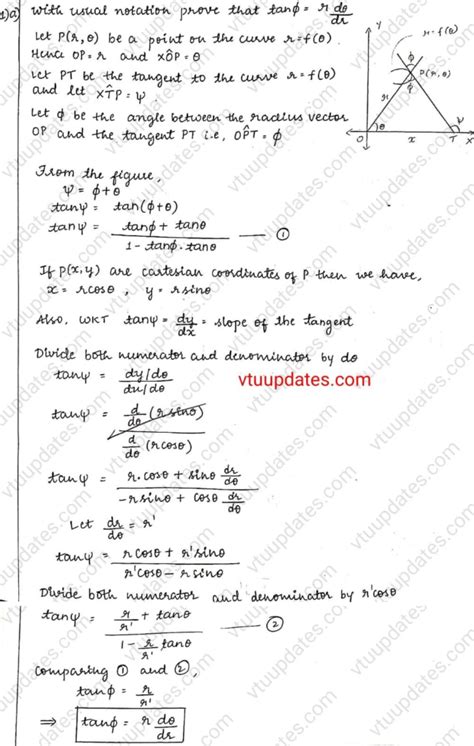 1)a) with usual notation prove that tanφ = r dθ/dr
Let P(r,θ) be a point on the curve r=f(θ).
Hence OP=r and XÔP=θ
Let PT be the tangent to the curve r=f(θ)
and let XT̂P=ψ.
Let φ be the angle between the radius vector
OP and the tangent PT i.e, OP̂T=φ
Y
r=f(θ)
φ
P(r,θ)
φ
r
θ
ψ
O
x
T
X
From the figure,
ψ = φ+θ
tanψ = tan(φ+θ)
tanψ = (tanφ + tanθ)/(1 - tanφ.tanθ) — ①
If P(x,y) are cartesian coordinates of P then we have,
x = rcosθ , y = rsinθ
Also, WKT tanψ = dy/dx = slope of the tangent
Divide both numerator and denominator by dθ
tanψ = (dy/dθ)/(dx/dθ)
vtuupdates.com
tanψ = (d/dθ (r sinθ))/(d/dθ (rcosθ))
tanψ = (r.cosθ + sinθ dr/dθ)/(-rsinθ + cosθ dr/dθ)
Let dr/dθ = r'
tanψ = (rcosθ + r'sinθ)/(r'cosθ - rsinθ)
Divide both numerator and denominator by r'cosθ
tanψ = (r/r' + tanθ)/(1 - r/r' tanθ) — ②
comparing ① and ②,
tanφ = r/r'
⇒ tanφ = r dθ/dr